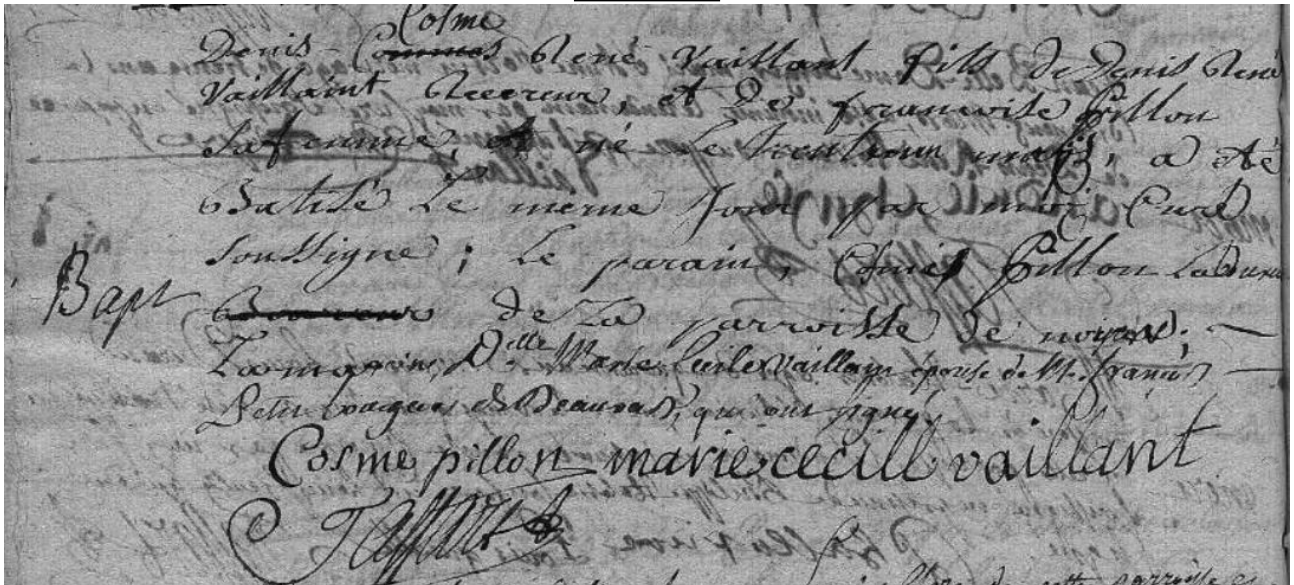 Cosme
Denis René Vaillant fils de Denis René
Vaillaint Receveur, et de francoise pillon
sa femme, né le trentieun mars, a été
Batisé Le meme jour par moi Curé
soussigné ; Le parain, Cosme pillon
Bapt
de La parroisse de noyers;
La maraine, D.lle Marie Cecile Vaillant épouse de Mr. francois
Petit de Beauvais, qui ont signé.
Cosme pillon marie cecill vaillant